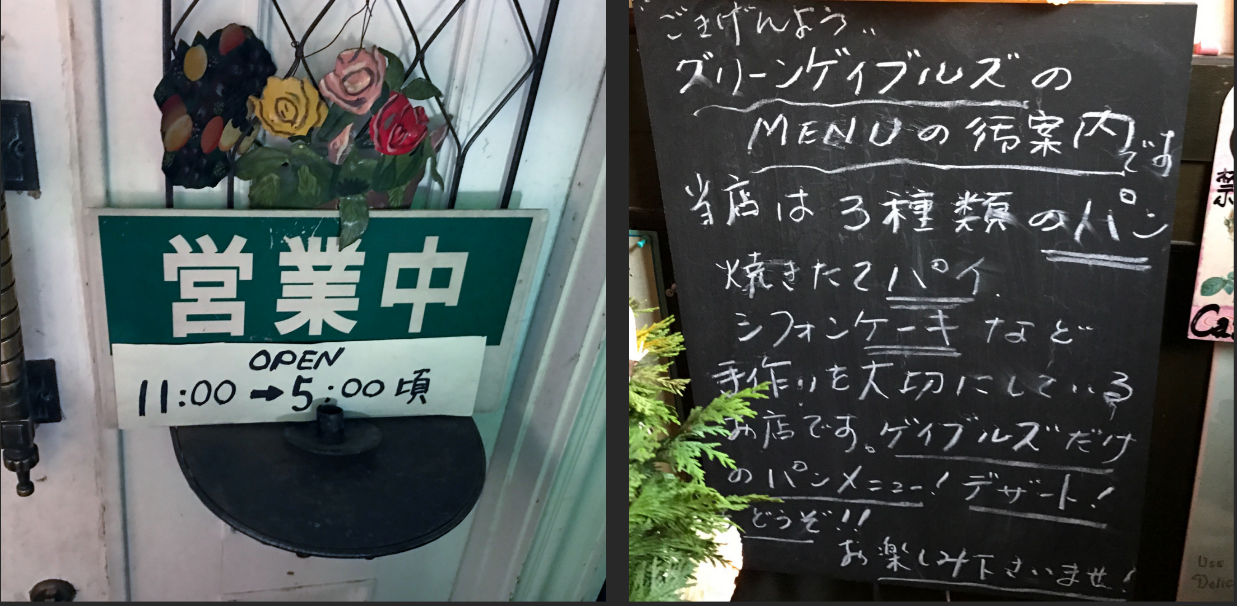 営業中
OPEN
11:00→5:00頃
ごきげんよう‥
グリーンゲイブルズの
MENUの御案内です
当店は3種類のパン
焼きたてパイ.
シフォンケーキなど
手作りを大切にしている
お店です。ゲイブルズだけ
のパンメニュー!デザート!
どうぞ!!
お楽しみ下さいませ!
禁
Ca
Use
Delic